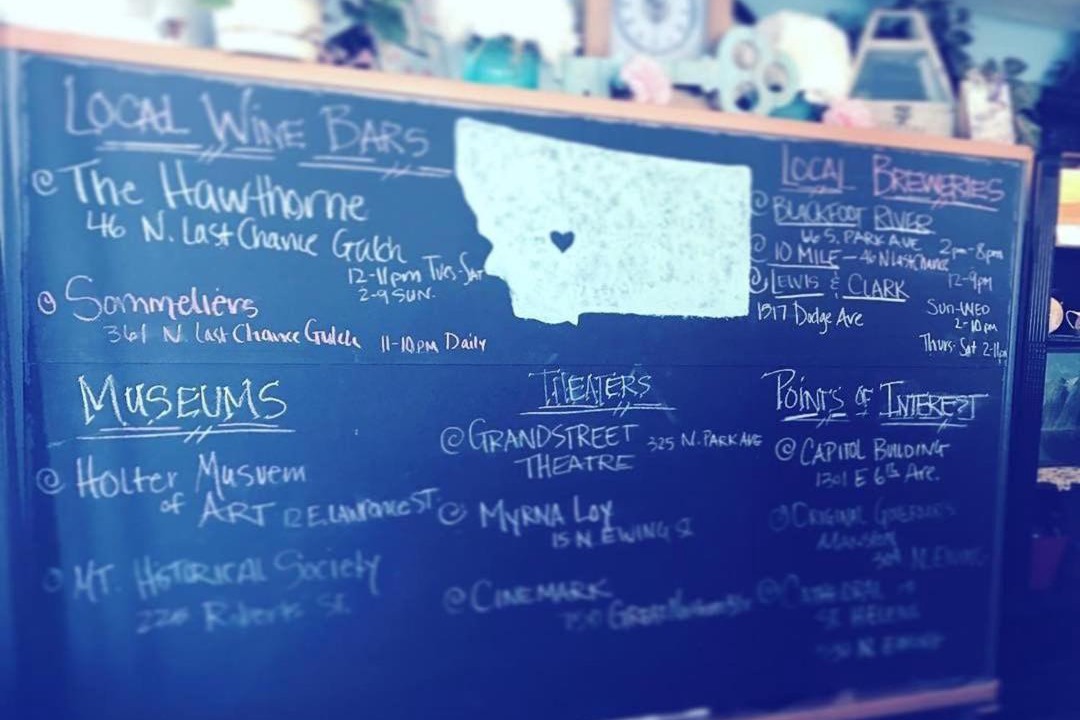 LOCAL WINE BARS
@ The Hawthorne
46 N. Last Chance Gulch
12-11pm Tues-Sat
2-9 SUN.
@ Sommeliers
361 N. Last Chance Gulch 11-10pm Daily
LOCAL BREWERIES
@ BLACKFOOT RIVER
66 S. PARK AVE 2pm-8pm
@ 10 MILE - 46 N Last Chance
12-9pm
@ LEWIS & CLARK
1517 Dodge Ave
Sun-WED
2-10pm
Thurs-Sat 2-11pm
MUSEUMS
@ Holter Museum
of ART 12 E. LAWRENCE ST.
@ MT. HISTORICAL Society
Roberts St.
THEATERS
@ GRANDSTREET 325 N. PARK AVE
THEATRE
@ MYRNA LOY
15 N. EWING St
@ CINEMARK
750 Great Northern
POINTS OF INTEREST
@ CAPITOL BUILDING
1301 E 6th Ave.
@ ORIGINAL GOVERNOR'S
MANSION
304 N. EWING
@ CATHEDRAL
ST. HELENA
N. EWING